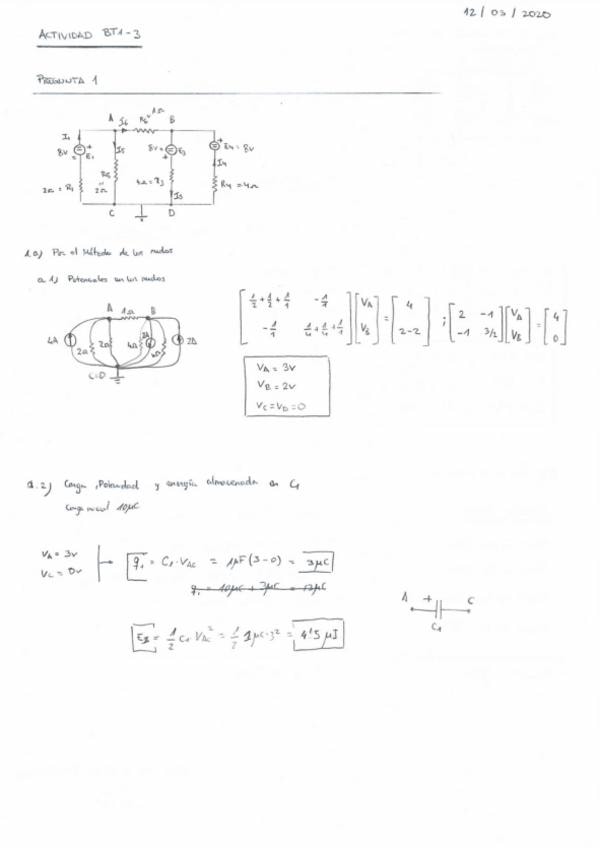 12/03/2020
ACTIVIDAD BT1-3
PREGUNTA 1
A I6 R6 1Ω B
I1
8V = E1 +
I5
8V = E3 +
+ E4 = 8V
I4
2Ω = R1
R5 = 2Ω
4Ω = R3
I3
R4 = 4Ω
C D
1.a) Por el Método de los nudos
a.1) Potenciales en los nudos
A 1Ω B
4A 2Ω 2Ω 4Ω 2A 4Ω 2A
C=D
[ 1/2+1/2+1/1 -1/1 ] [ VA ] = [ 4 ] ; [ 2 -1 ] [ VA ] = [ 4 ]
[ -1/1 1/4+1/4+1/1 ] [ VB ] [ 2-2 ] [ -1 3/2 ] [ VB ] [ 0 ]
VA = 3V
VB = 2V
VC = VD = 0
a.2) Carga, Polaridad y energía almacenada en C1
Carga inicial 10μC
VA = 3V
VC = 0V
q1 = C1·VAC = 1μF (3-0) = 3μC
q1 = 10μC + 3μC = 13μC
A + C
C1
E1 = 1/2 C1·VAC² = 1/2 1μC·3² = 4'5 μJ